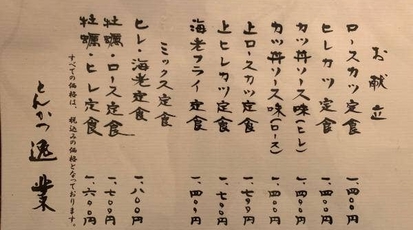 お献立
ロースカツ定食 一、四〇〇円
ヒレカツ定食 一、四〇〇円
カツ丼ソース味(ヒレ) 一、四〇〇円
カツ丼ソース味(ロース) 一、四〇〇円
上ロースカツ定食 一、七〇〇円
上ヒレカツ定食 一、七〇〇円
海老フライ定食 一、四〇〇円
ミックス定食
ヒレ・海老定食 一、八〇〇円
牡蠣・ロース定食 一、七〇〇円
牡蠣・ヒレ定食 一、六〇〇円
すべての価格は、税込みの価格となっております。
とんかつ 逸業